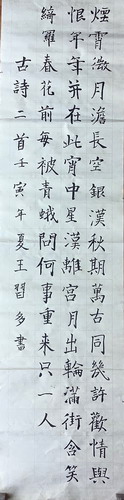 煙霄微月澹長空銀漢秋期萬古同幾許歡情與
恨年年并在此宵中星漢離宮月出輪滿街含笑
綺羅春花前每被青蛾問何事重來只一人
古詩二首壬寅年夏王習多書